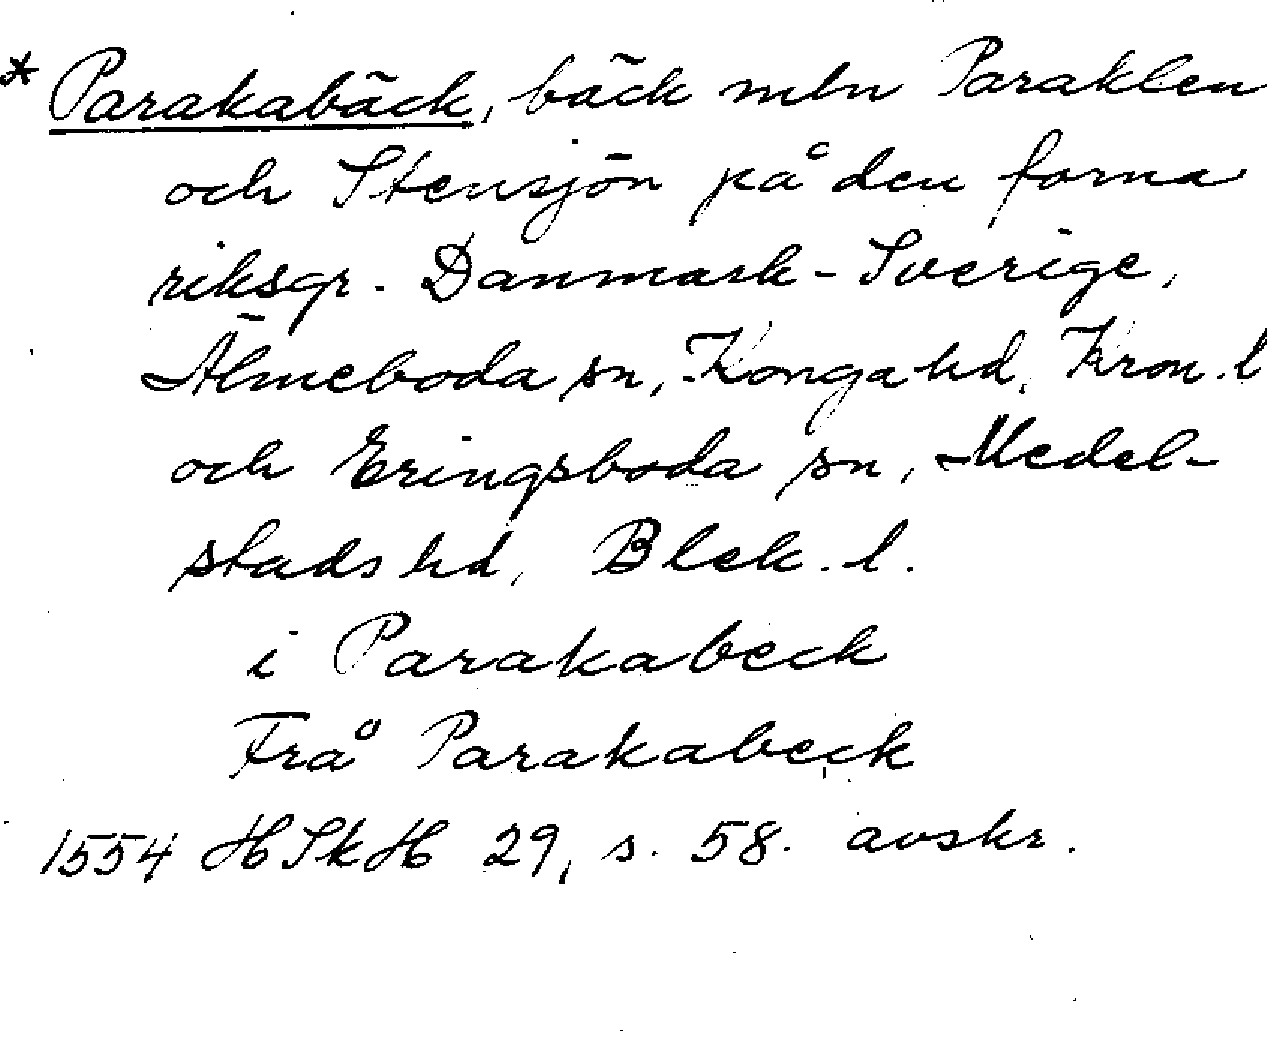 * Parakabäck, bäck mln Paraklen
och Stensjön på den forna
riksgr. Danmark - Sverige,
Älmeboda sn, Konga hd, Kron. l
och Eringsboda sn, Medel-
stads hd, Blek. l.
i Parakabeck
Frå Parakabeck
1554 HSkH 29, s. 58. avskr.